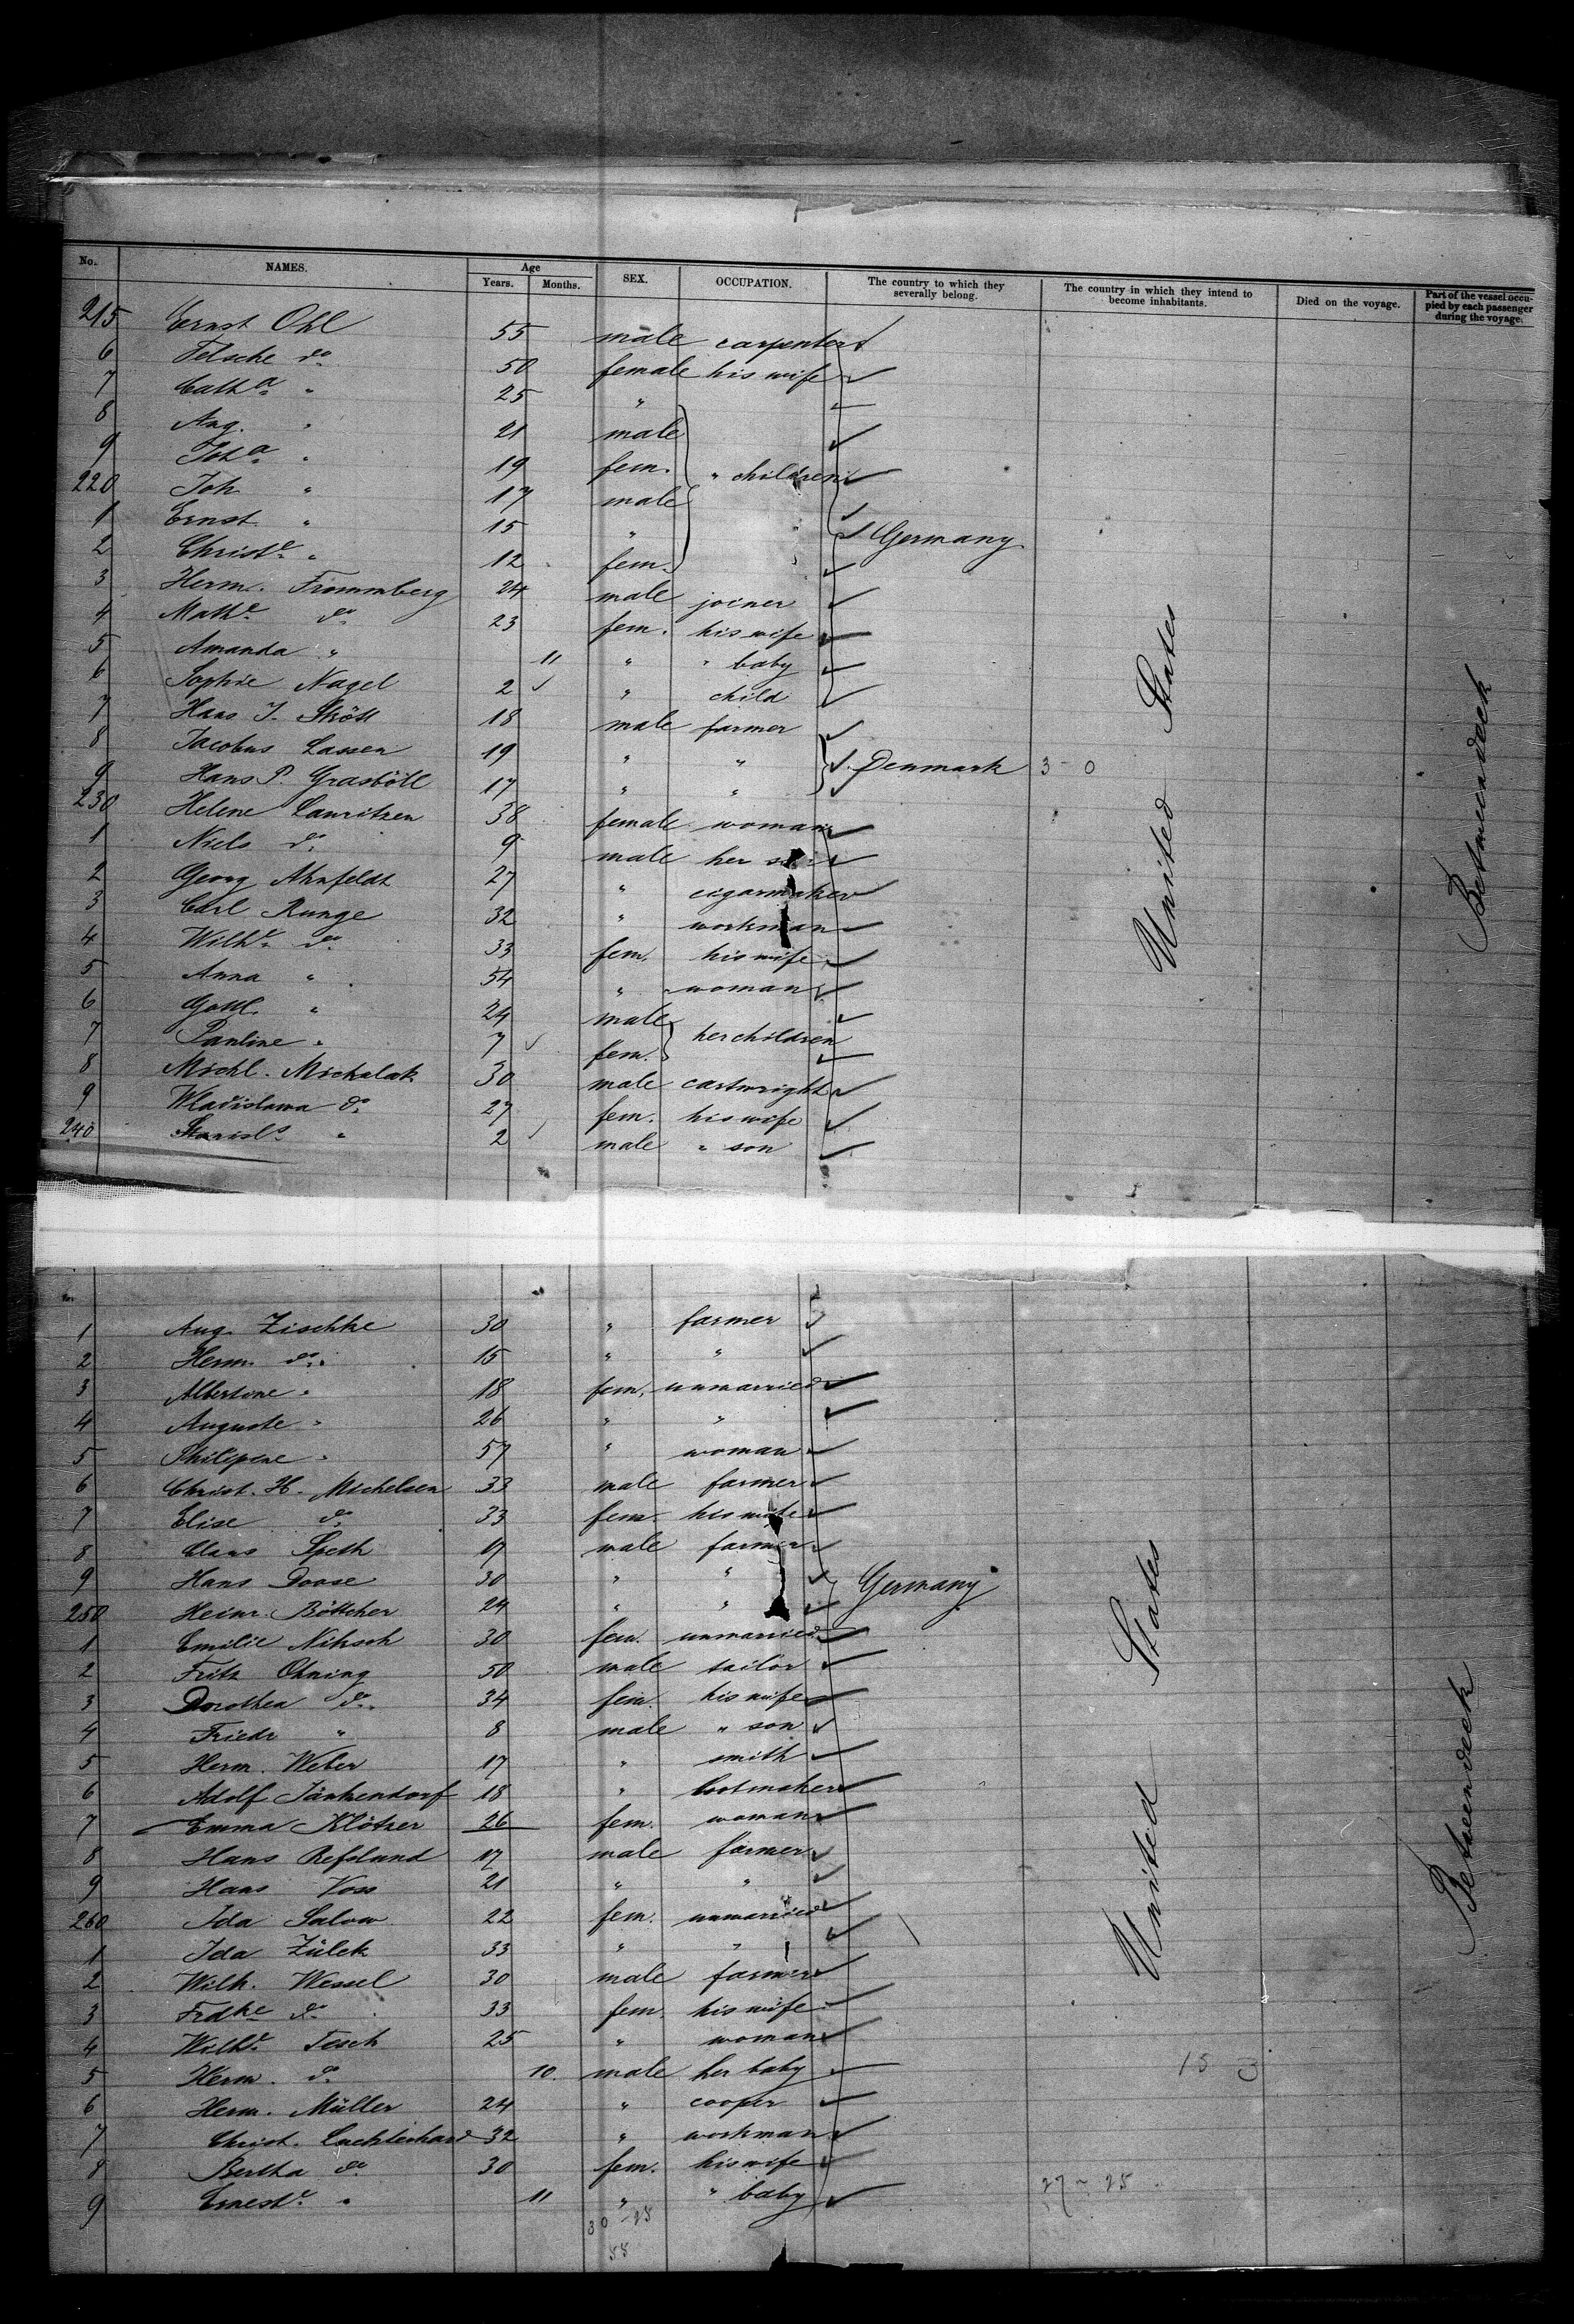 No. NAMES. Age Years. Months. SEX. OCCUPATION. The country to which they severally belong. The country in which they intend to become inhabitants. Died on the voyage. Part of the vessel occupied by each passenger during the voyage.
215 Ernst Ohl 55 male carpenter
6 Telsche do 50 female his wife
7 Catha " 25 "
8 Aug. " 21 male
9 Joha " 19 fem. " children
220 Joh " 17 male
1 Ernst " 15 " " Germany
2 Christe " 12 fem. "
3 Herm. Frommberg 24 male joiner
4 Mathe do 23 fem. his wife
5 Amanda " 11 " " baby
6 Sophie Nagel 2 " child
7 Hans J. Skött 18 male farmer
8 Jacobus Lassen 19 " " Denmark 3 - 0
9 Hans P. Grasböll 17 " "
230 Helene Lauritzen 38 female woman
1 Niels do 9 male her son
2 Georg Ahnfeldt 27 " cigarmaker
3 Carl Runge 32 " workman
4 Wilhe do 33 fem. his wife
5 Anna " 54 " woman
6 Gottl. " 24 male
7 Pauline " 7 fem. her children
8 Michl. Michalak 30 male cartwright
9 Wladislawa do 27 fem. his wife
240 Stanisls " 2 male " son
United States
Betweendeck
1 Aug. Zischke 30 " farmer
2 Herm. do 15 " "
3 Albertine " 18 fem. unmarried
4 Auguste " 26 " "
5 Philipine " 57 " woman
6 Christ. H. Michelsen 33 male farmer
7 Elise do 33 fem. his wife
8 Claus Speth 17 male farmer
9 Hans Doose 30 " " Germany
250 Heinr. Böttcher 24 " "
1 Emilie Nitzsch 30 fem. unmarried
2 Fritz Ohning 50 male tailor
3 Dorothea do 34 fem. his wife
4 Friedr " 8 male " son
5 Herm. Weber 17 " smith
6 Adolf Jänkendorf 18 " bootmaker
7 Emma Klötzer 26 fem. woman
8 Hans Refslund 17 male farmer
9 Hans Voss 21 " "
260 Ida Salow 22 fem. unmarried
1 Ida Zülck 33 " "
2 Wilh. Wessel 30 male farmer
3 Frdke do 33 fem. his wife
4 Wilhe Tesch 25 " woman
5 Herm. do 10 male her baby
6 Herm. Müller 24 " cooper
7 Christ. Luchterhand 32 " workman
8 Bertha do 30 fem. his wife
9 Erneste " 11 " " baby
United States
Betweendeck
15 3
27 - 25
30 - 25
55